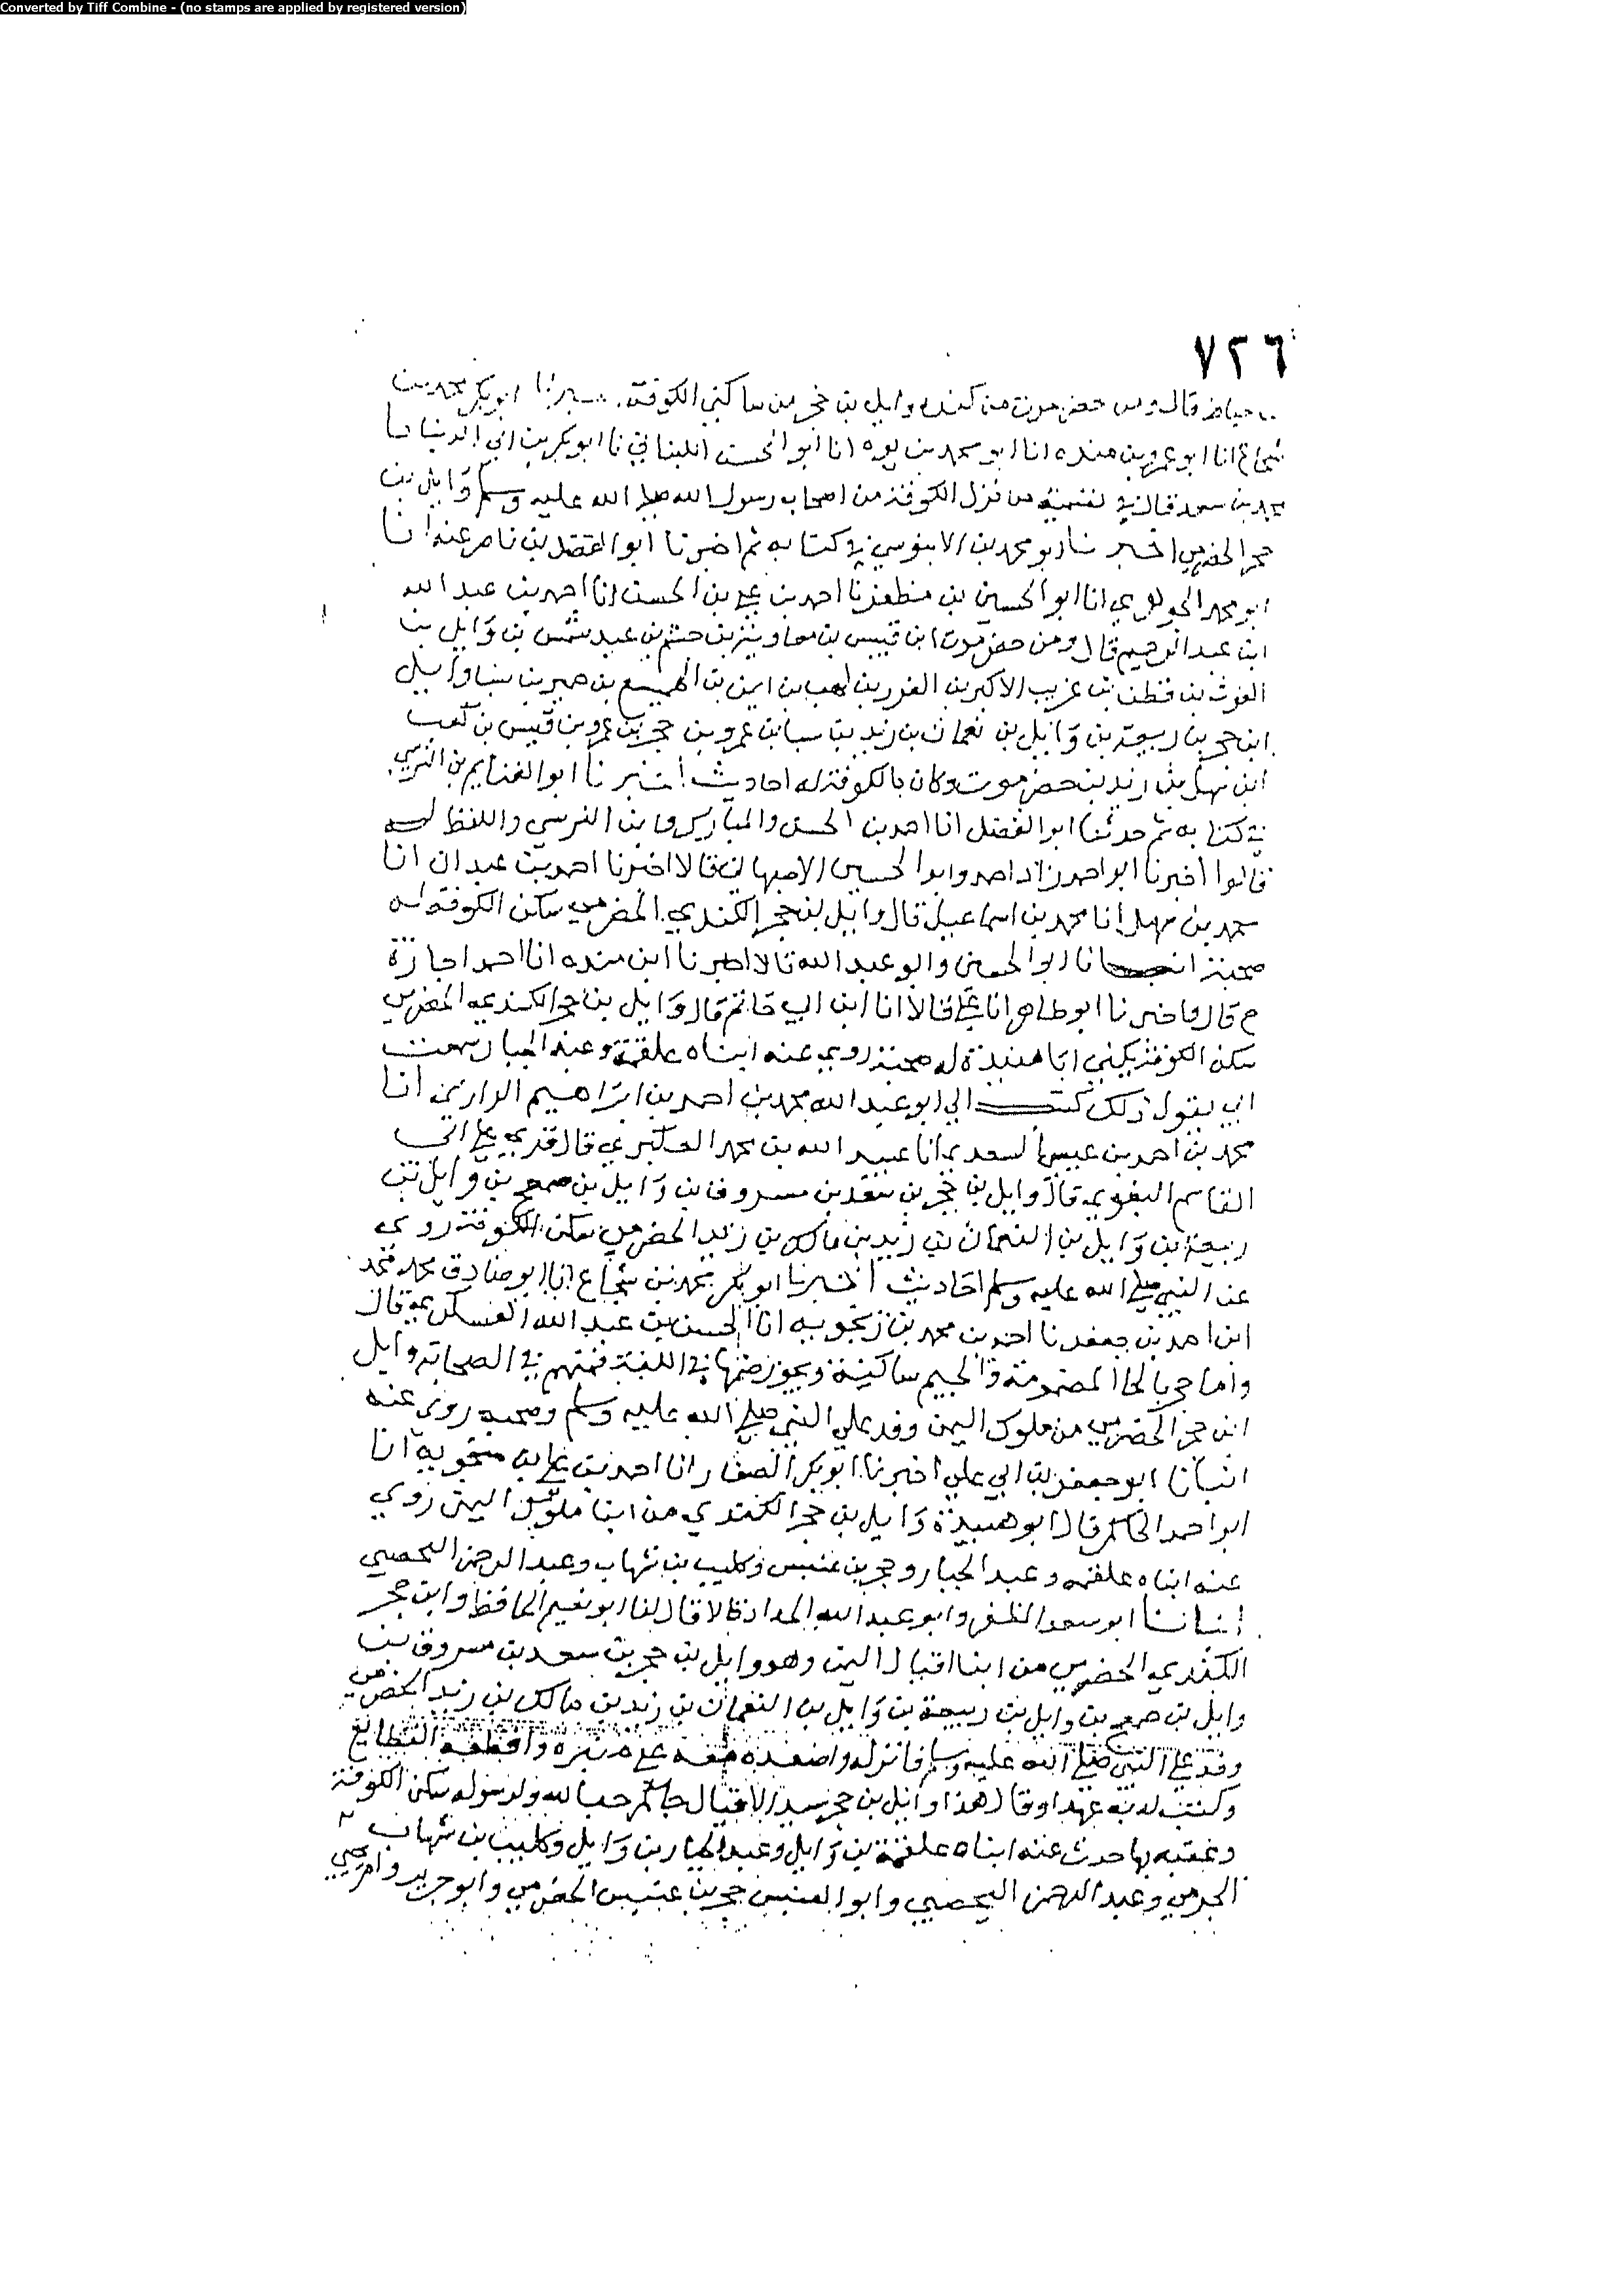 Converted by Tiff Combine - (no stamps are applied by registered version)
٧٢٦
خياط قال ومن حضرموت من كندة وايل بن حجر من ساكني الكوفة ابو بكر محمد بن
شجاع انا ابو عمرو بن منده انا ابو محمد بن يوه انا ابو الحسن اللبناني نا ابو بكر بن ابي الدنيا نا
محمد بن سعد قال في تسمية من نزل الكوفة من اصحاب رسول الله صلى الله عليه وسلم وايل بن
حجر الحضرمي اخبرنا ابو محمد بن الابنوسي في كتابه ثم اخبرنا ابو الفضل بن ناصر عنه انا
ابو محمد الجوهري انا ابو الحسين بن مظفر نا احمد بن علي بن الحسن انا احمد بن عبد الله
ابن عبد الرحيم قال ومن حضرموت ابن قيس بن معاوية بن جشم بن عبد شمس بن وايل بن
الغوث بن قطن بن عريب الاكبر بن الغرر بن ايمن بن الهميسع بن حمير بن سبا وايل
ابن حجر بن ربيعة بن وايل بن نعمان بن زيد بن سبا بن عمرو بن حجر بن عمرو بن قيس بن كعب
ابن زيد بن حضرموت وكان بالكوفة له احاديث اخبرنا ابو الغنايم بن النرسي
في كتابه ثم حدثنا ابو الفضل انا احمد بن الحسن والمبارك وابن النرسي واللفظ له
قالوا اخبرنا ابو احمد زاد احمد وابو الحسين الاصبهاني قالا اخبرنا احمد بن عبدان انا
محمد بن سهل انا محمد بن اسماعيل قال وايل بن حجر الكندي الحضرمي سكن الكوفة له
صحبة انا ابو الحسين وابو عبد الله قالا اخبرنا ابن منده انا احمد اجازة
ح قال واخبرنا ابو طاهر انا علي قالا انا ابن ابي حاتم قال وايل بن حجر الكندي الحضرمي
سكن الكوفة يكنى ابا هنيدة له صحبة روى عنه ابناه علقمة وعبد الجبار سمعت
ابي يقول ذلك كتب الي ابو عبد الله محمد بن احمد بن ابراهيم الرازي انا
محمد بن احمد بن عيسى السعدي انا عبيد الله بن محمد العكبري قال قري على ابي
القاسم البغوي قال وايل بن حجر بن سعد بن مسروق بن وايل بن ضمعج بن وايل بن
ربيعة بن وايل بن النعمان بن زيد بن مالك بن زيد الحضرمي سكن الكوفة روى
عن النبي صلى الله عليه وسلم احاديث اخبرنا ابو بكر محمد بن شجاع انا ابو صادق محمد
ابن احمد بن جعفر نا احمد بن محمد بن زنجويه انا الحسن بن عبد الله العسكري قال
واما حجر بالحا المضمومة والجيم ساكنة ويجوز ضمها في اللغة فمنهم في الصحابة وايل
ابن حجر الحضرمي من ملوك اليمن وفد على النبي صلى الله عليه وسلم وصحبه روى عنه
انبانا ابو جعفر بن ابي علي اخبرنا ابو بكر الصفار انا احمد بن علي بن منجويه انا
ابو احمد الحاكم قال ابو هنيدة وايل بن حجر الكندي من ابنا ملوك اليمن روى
عنه ابناه علقمة وعبد الجبار وحجر بن عنبس وكليب بن شهاب وعبد الرحمن اليحصبي
انبانا ابو سعد المظفر وابو عبد الله الحداد قالا قال لنا ابو نعيم الحافظ وابن حجر
الكندي الحضرمي من ابنا اقيال اليمن وهو وايل بن حجر بن سعد بن مسروق بن
وايل بن ضمعج بن وايل بن ربيعة بن وايل بن النعمان بن زيد بن مالك بن زيد الحضرمي
وفد على النبي صلى الله عليه وسلم فانزله واصعده معه على منبره واقطعه القطايع
وكتب له به عهدا وقال هذا وايل بن حجر سيد الاقيال جاكم حبا لله ولرسوله سكن الكوفة
وعقبه بها حدث عنه ابناه علقمة بن وايل وعبد الجبار بن وايل وكليب بن شهاب
الجرمي وعبد الرحمن اليحصبي وابو العنبس حجر بن عنبس الحضرمي وابو جرير وام يحيى